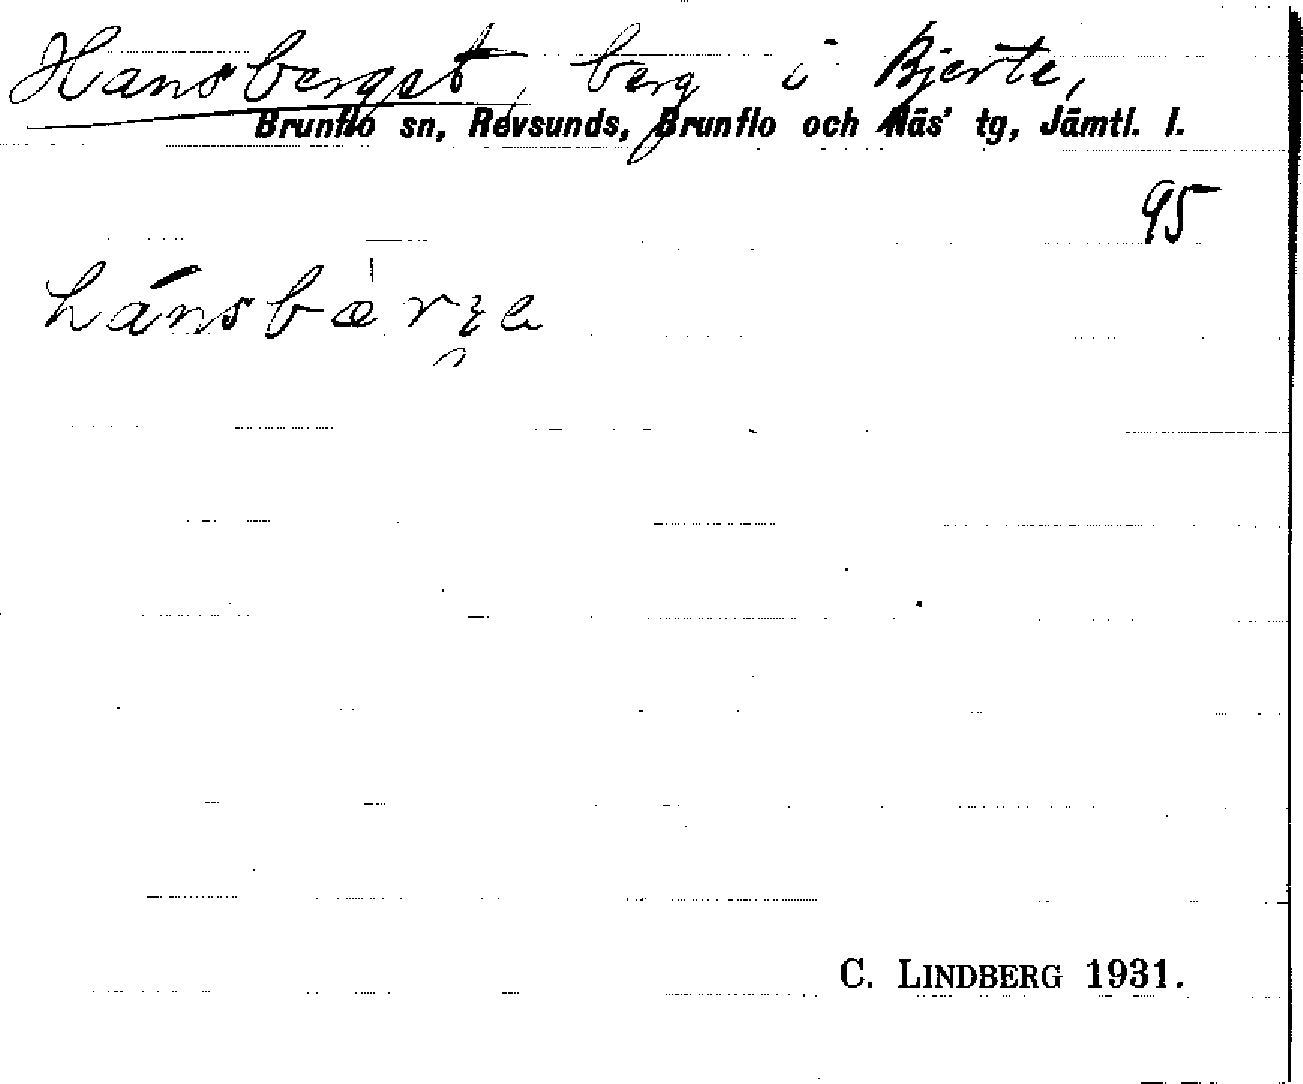 Hansberget, berg i Bjerte,
Brunflo sn, Revsunds, Brunflo och Näs' tg, Jämtl. l.
95
hánsbærge
C. LINDBERG 1931.